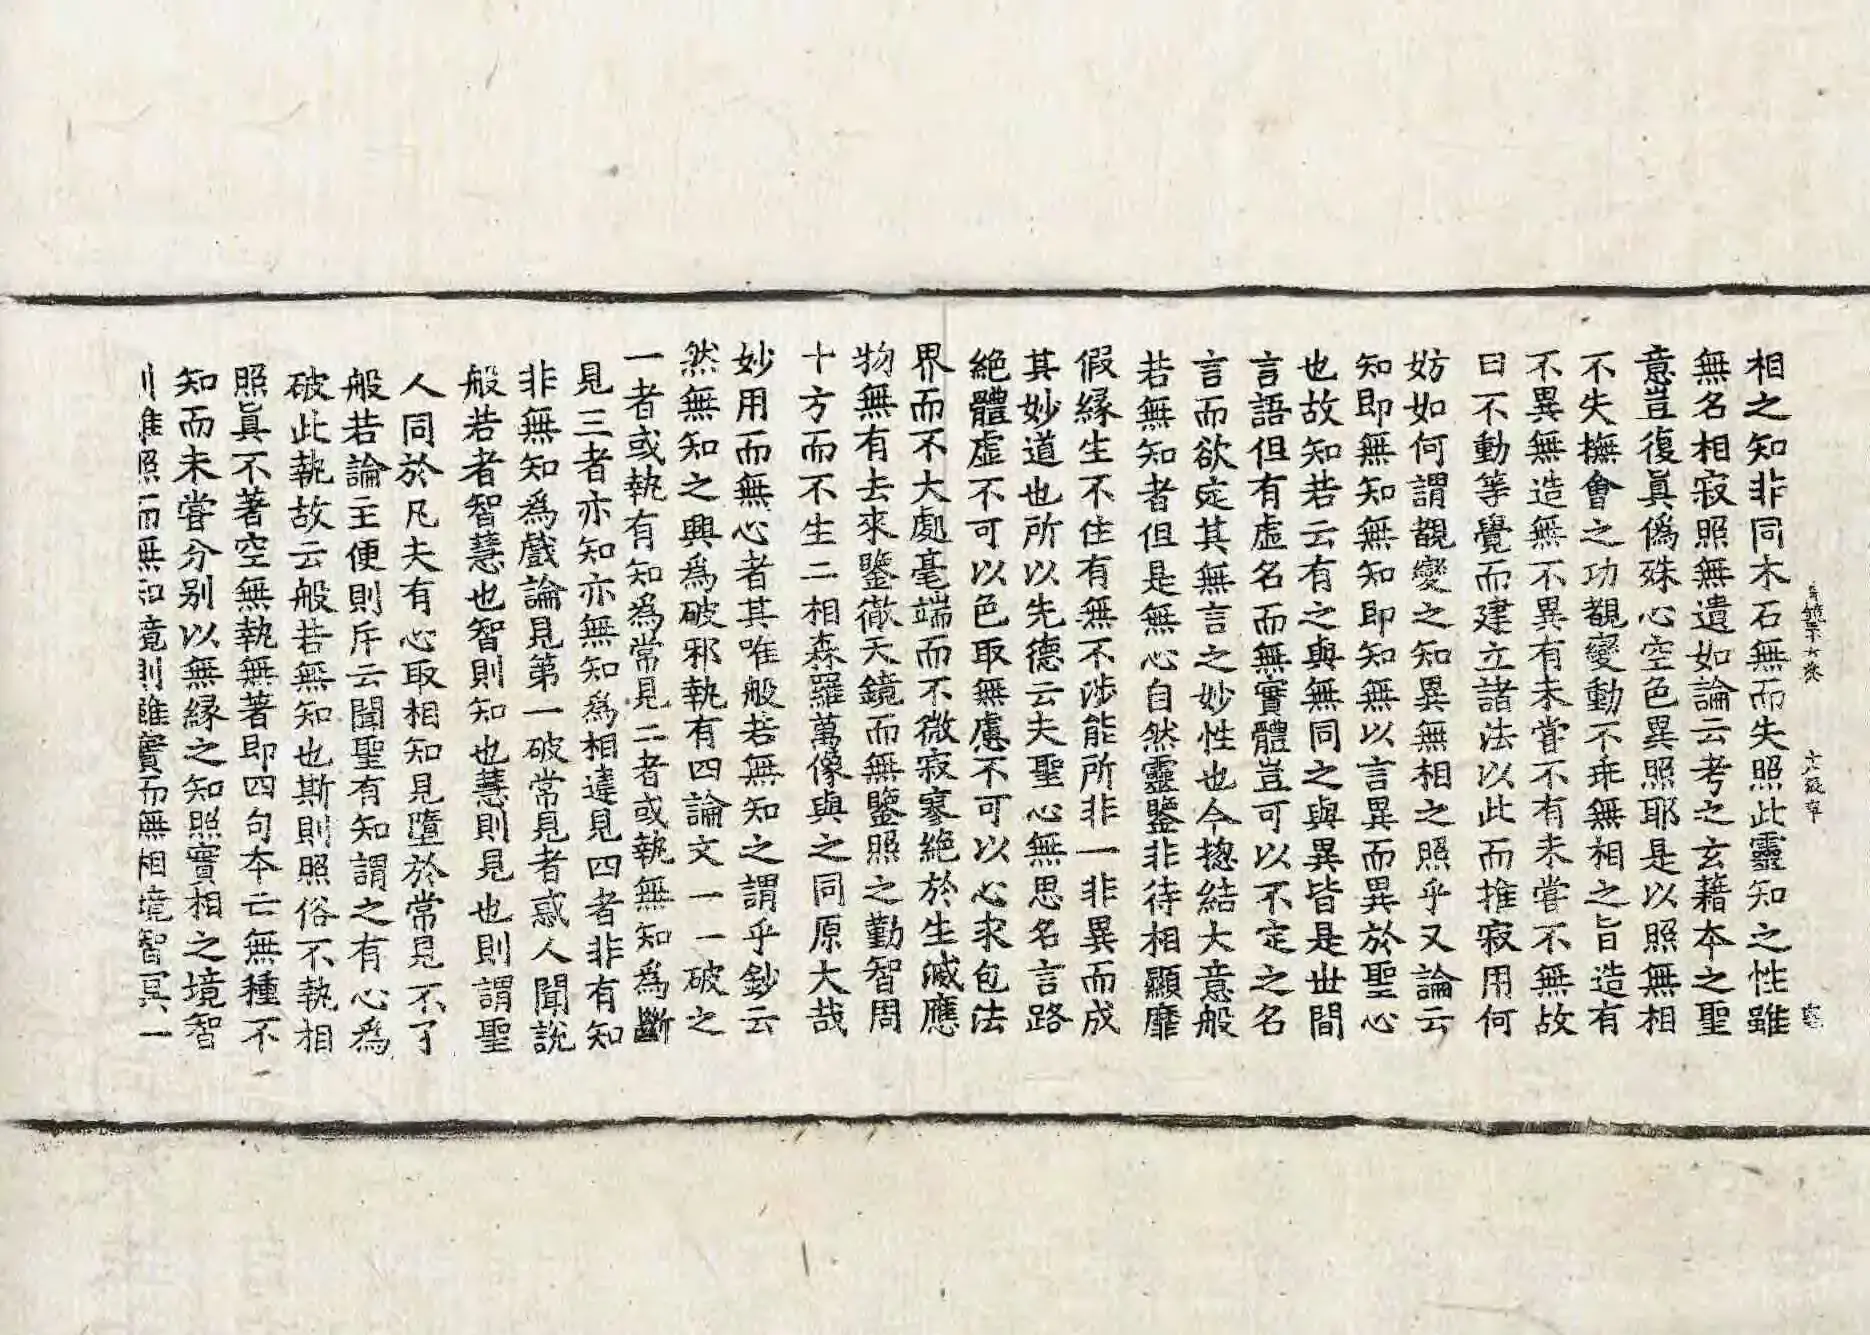 相之知非同木石無而失照此靈知之性雖
無名相寂照無遺如論云考之玄藉本之聖
意豈復眞僞殊心空色異照耶是以照無相
不失撫會之功覩變動不乖無相之旨造有
不異無造無不異有未嘗不有未嘗不無故
曰不動等覺而建立諸法以此而推寂用何
妨如何謂覩變之知異無相之照乎又論云
知即無知無知即知無以言異而異於聖心
也故知若云有之與無同之與異皆是世間
言語但有虛名而無實體豈可以不定之名
言而欲定其無言之妙性也今揔結大意般
若無知者但是無心自然靈鑒非待相顯靡
假緣生不住有無不涉能所非一非異而成
其妙道也所以先德云夫聖心無思名言路
絶體虛不可以色取無慮不可以心求包法
界而不大處毫端而不微寂寥絶於生滅應
物無有去來鑒徹天鏡而無鑒照之勤智周
十方而不生二相森羅萬像與之同原大哉
妙用而無心者其唯般若無知之謂乎鈔云
然無知之興爲破邪執有四論文一一破之
一者或執有知爲常見二者或執無知爲斷
見三者亦知亦無知爲相違見四者非有知
非無知爲戲論見第一破常見者惑人聞說
般若者智慧也智則知也慧則見也則謂聖
人同於凡夫有心取相知見墮於常見不了
般若論主便則斥云聞聖有知謂之有心爲
破此執故云般若無知也斯則照俗不執相
照眞不著空無執無著即四句本亡無種不
知而未嘗分別以無緣之知照實相之境智
則雖照而無知境則雖實而無相境智冥一